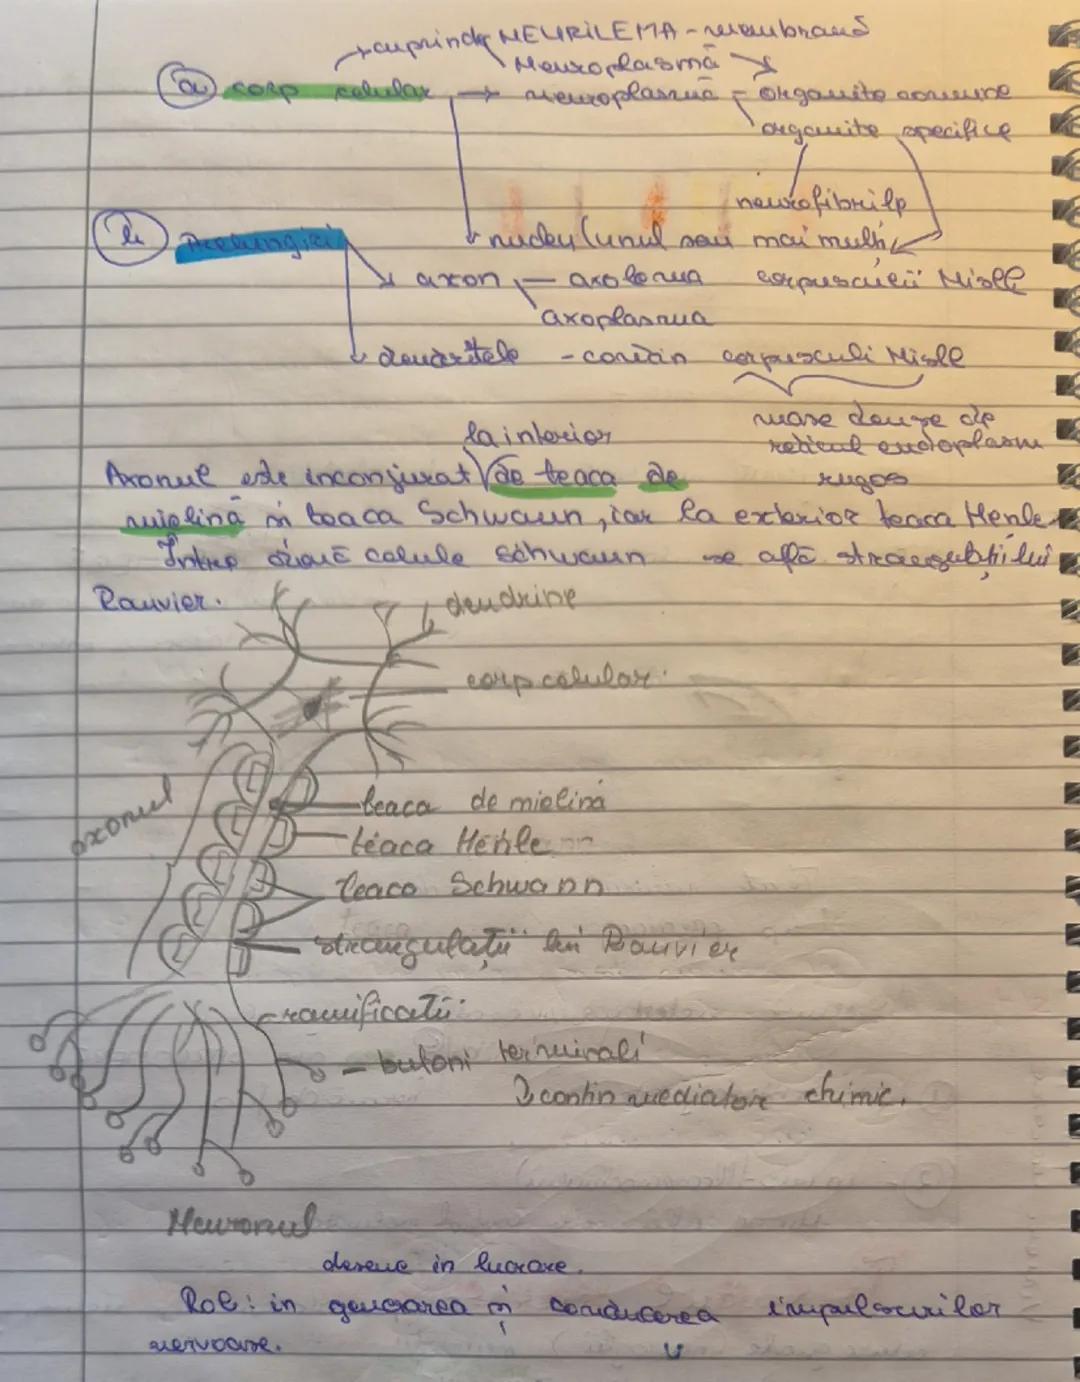 cuprinde NEURILEMA - membrană
Neuroplasmă
a corp celular → neuroplasmă - organite comune
organite specifice
neurofibrile
nucleu (unul sau mai mulți
b Prelungiri
axon - axolema corpusculii Nissl
axoplasma
dendritele - conțin corpusculi Nissl
mase dense de
la interior reticul endoplasm
Axonul este inconjurat de teaca de rugos
mielină și teaca Schwann, iar la exterior teaca Henle
Între două celule Schwann se află strangulațiile lui
Ranvier.
dendrine
corp celular
axonul
teaca de mielină
teaca Henle
teaca Schwann
strangulații lui Ranvier
ramificații
butoni terminali
conțin mediatori chimic.
Neuronul
desene in lucrare.
Rol: in generarea și conducerea impulsurilor
nervoase.